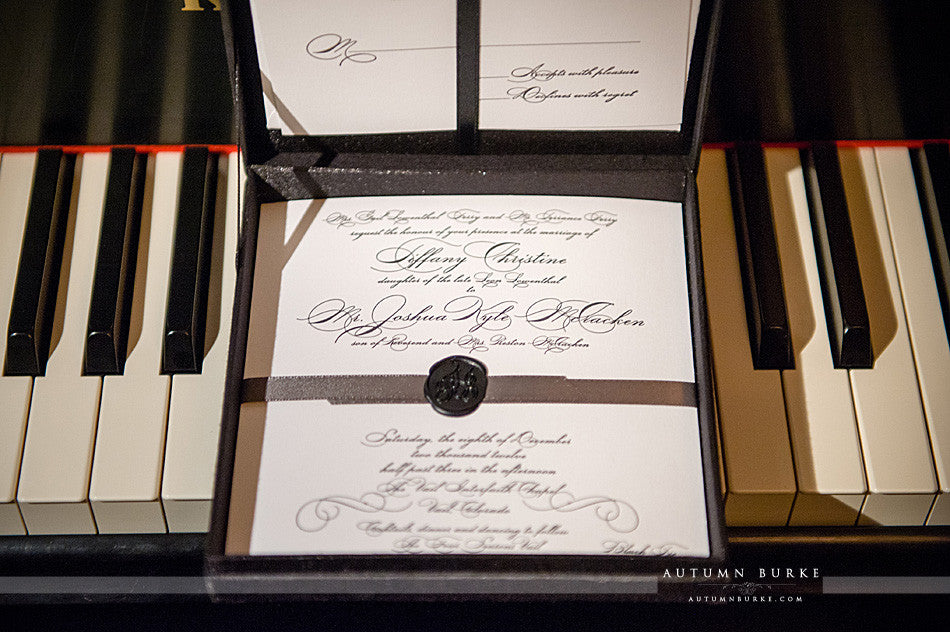 M
Accepts with pleasure
Declines with regret
Mrs. Gail Lowenthal Ferry and Mr. Terrance Ferry
request the honour of your presence at the marriage of
Tiffany Christine
daughter of the late Leon Lowenthal
to
Mr. Joshua Kyle McCracken
son of Reverend and Mrs. Preston McCracken
Saturday, the eighth of December
two thousand twelve
half past three in the afternoon
The Vail Interfaith Chapel
Vail Colorado
Cocktails, dinner and dancing to follow
The Four Seasons Vail
Black Tie
AUTUMN BURKE
AUTUMNBURKE.COM